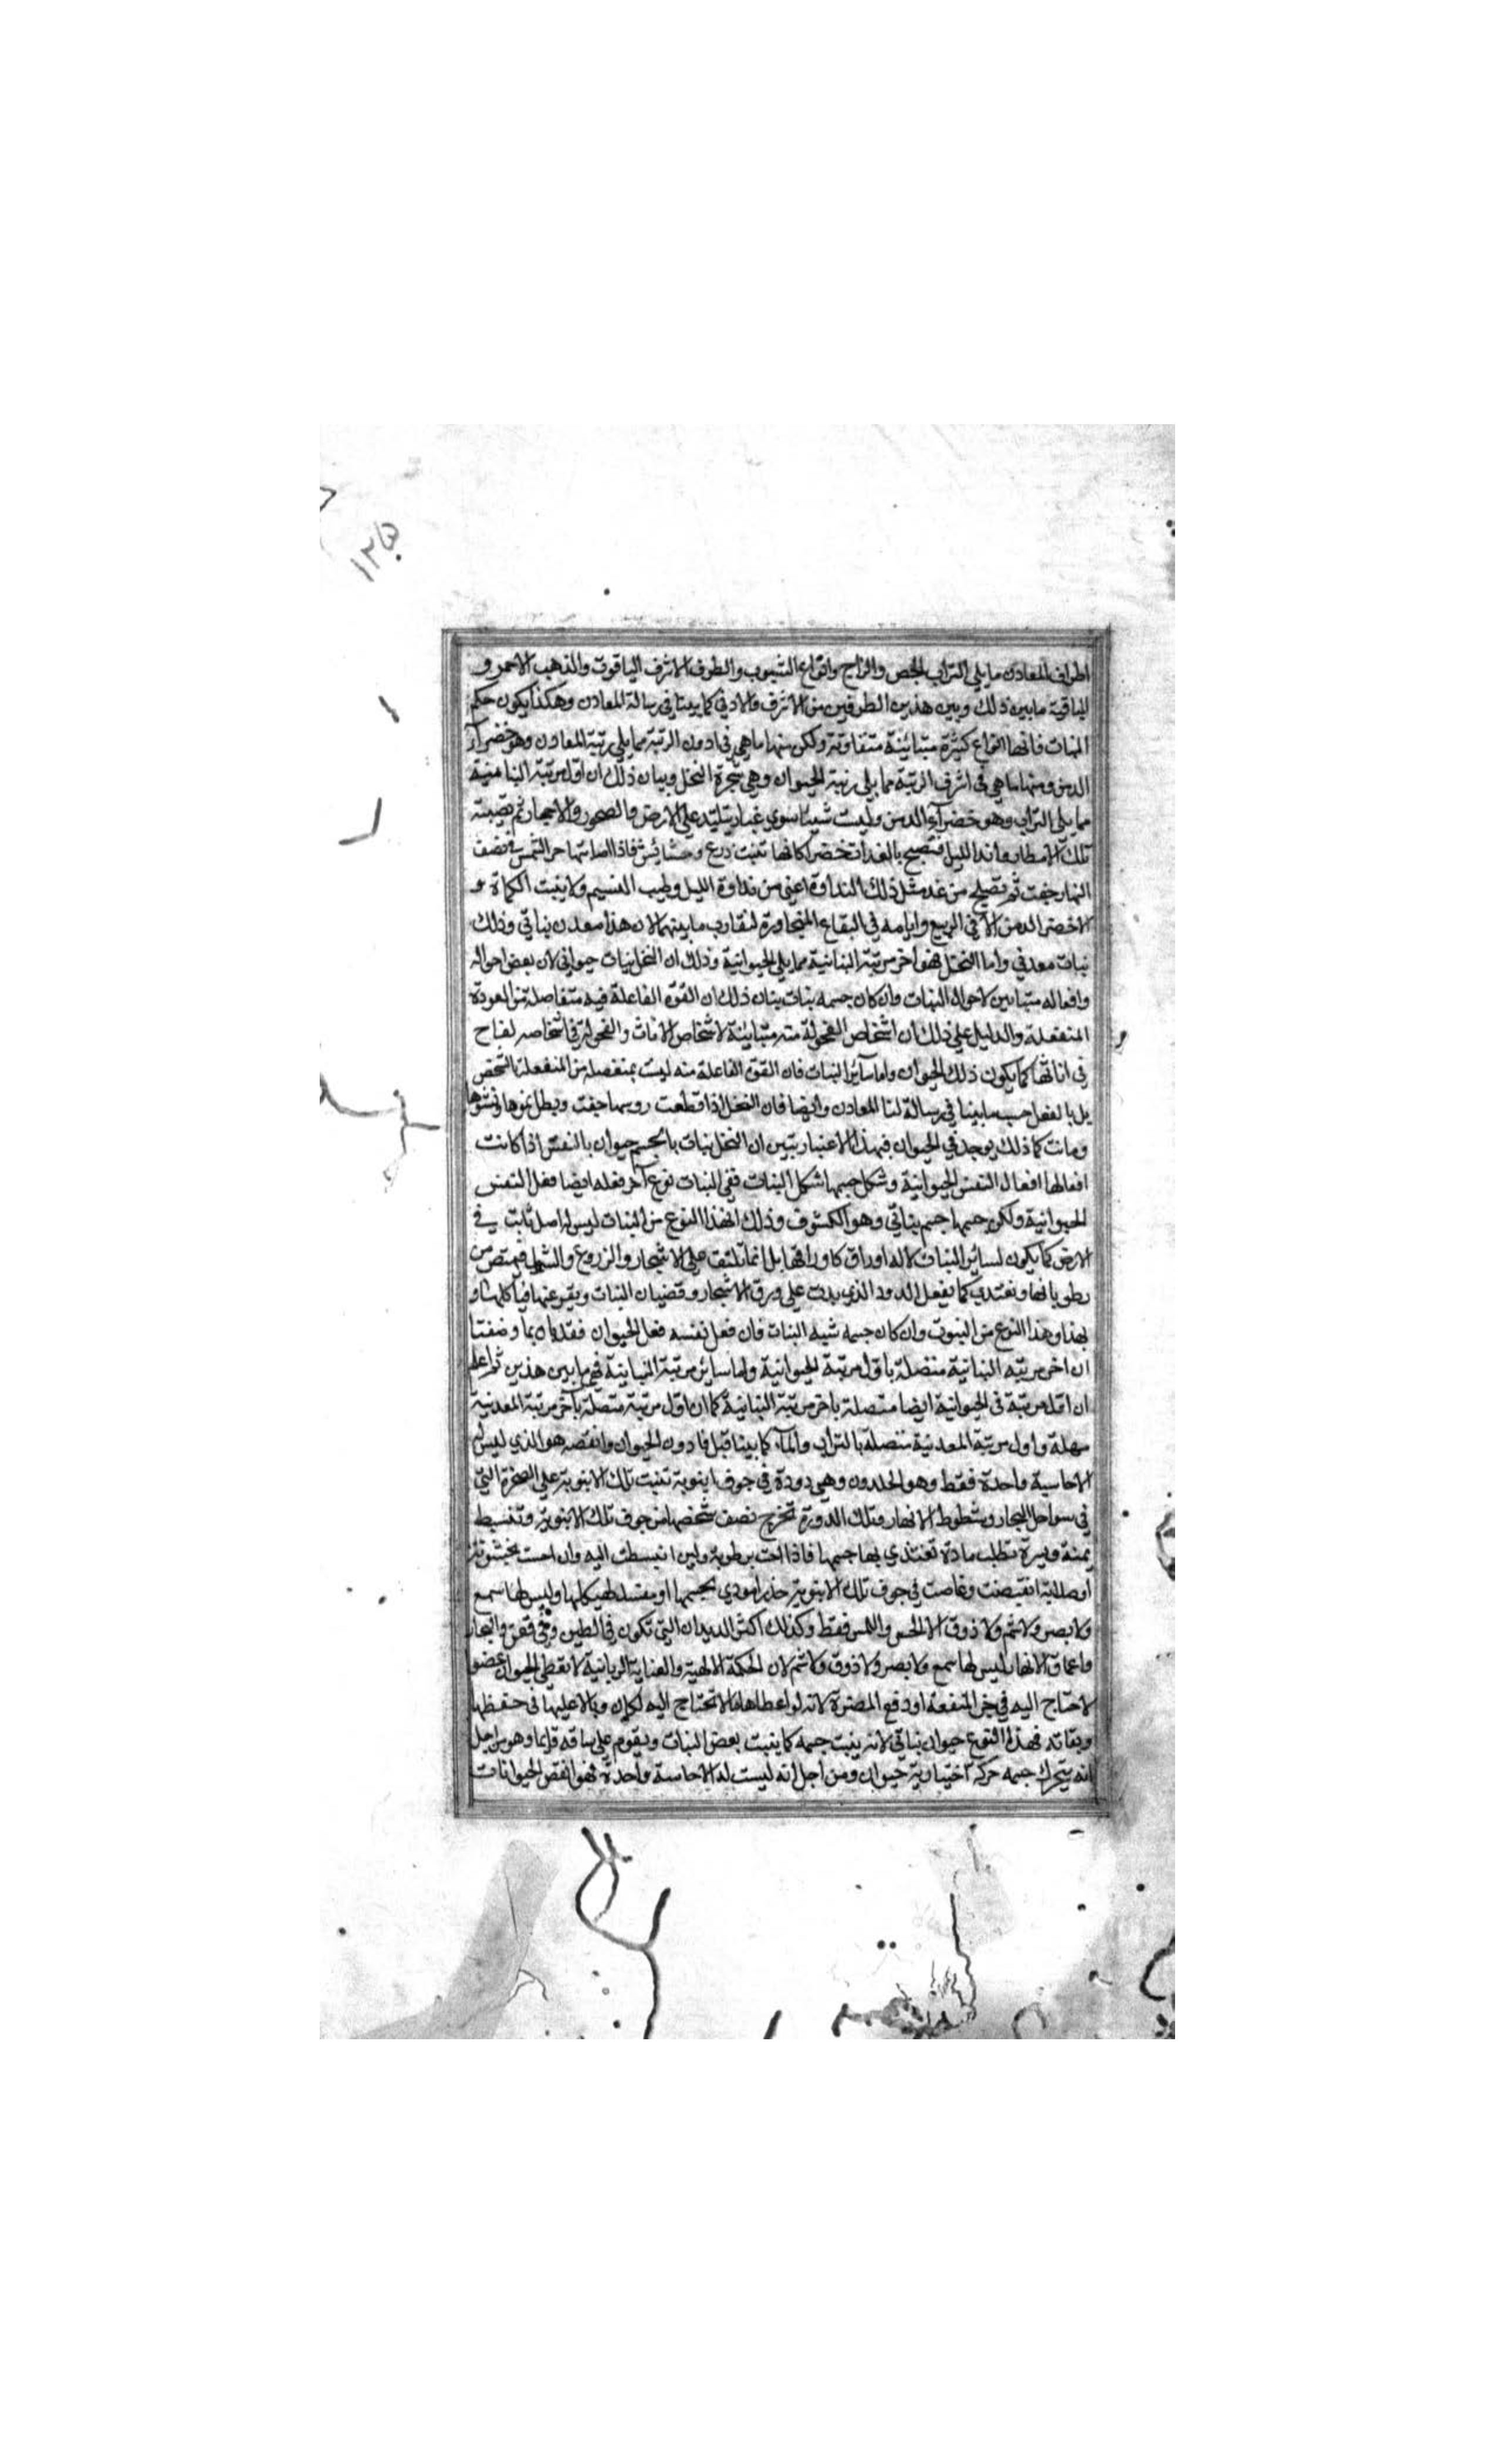 ١٢٥
اطراف المعادن ما يلي التراب الجص والزاج وانواع الشبوب والطرف الاشرف الياقوت والذهب الاحمر و
الباقية ما بين ذلك وبين هذين الطرفين من الاشرف والادني كما بينا في رسالة المعادن وهكذا يكون حكم
النبات فانها انواع كثيرة متباينة متفاوتة ولكن منها ما هي في ادون الرتبة مما يلي رتبة المعادن وهو خضرآء
الدمن ومنها ما هي في اشرف الرتبة مما يلي رتبة الحيوان وهي شجرة النخل وبيان ذلك ان اول مرتبة النباتية
مما يلي التراب وهو خضرآء الدمن وليست شيئا سوي غبار يتلبد علي الارض والصخور والاحجار ثم تصيبه
تلك الامطار واندا الليل فتصبح بالغدات خضرا كانها نبت زرع وحشائش فاذا اصابتها حر الشمس في نصف
النهار جفت ثم تصبح من غد مثل ذلك النداوة اعني من نداوة الليل وطيب النسيم ولا ينبت الكماة و
لا خضر الدمن الا في الربيع وايامه في البقاع المتجاورة لتقارب ما بينهما لان هذا معدن نباتي وذلك
نبات معدني واما النخل فهو اخر مرتبة النباتية مما يلي الحيوانية وذلك ان النخل نبات حيواني لان بعض احواله
وافعاله متباين لاحوال النبات وان كان جسمه نبات بيان ذلك ان القوة الفاعلة فيه متفاصلة من القوة
المنفعلة والدليل علي ذلك ان اشخاص الفحولة منه متباينة لاشخاص الاناث والفحولة في اشخاصه لقاح
في اناثها كما يكون ذلك الحيوان واما سائر النبات فان القوة الفاعلة منه ليست بمنفصلة من المنفعلة بالشخص
بل بالفعل حسب ما بينا في رسالة لنا المعادن وايضا فان النخل اذا قطعت روسها جفت وبطل نموها ونشوها
وماتت كما ذلك يوجد في الحيوان فبهذا الاعتبار تبين ان النخل نبات بالجسم حيوان بالنفس اذا كانت
افعالها افعال النفس الحيوانية وشكل جسمها شكل النبات ففي النبات نوع آخر فعله ايضا فعل النفس
الحيوانية ولكن جسمها جسم نباتي وهو الكشوف وذلك ان هذا النوع من النبات ليس له اصل ثابت في
الارض كما يكون لسائر النبات لا له اوراق كاوراقها بل انما تلتف علي الاشجار والزروع والشوك فيمتص من
رطوباتها ويغتذي كما يفعل الدود الذي يدب علي ورق الاشجار وقضبان النبات
بهذا وهذا النوع من النبوت وان كان جسمه شبه النبات فان فعل نفسه فعل الحيوان فقد بان بما وصفنا
ان اخر مرتبه النباتية متصلة باول مرتبة الحيوانية واما سائر مرتبة النباتية فهي ما بين هذين ثم اعلم
ان اول مرتبة في الحيوانية ايضا متصلة باخر مرتبة النباتية كما ان اول مرتبة متصلة بآخر مرتبة المعدنية
مهلة واول مرتبة المعدنية متصلة بالتراب والمآء كما بينا قبل فادون الحيوان وانقصه هو الذي ليس له
الا حاسية واحدة فقط وهو الحلدون وهي دودة في جوف انبوبة تنبت تلك الانبوبة علي الصخرة التي
في سواحل البحار وشطوط الانهار وتلك الدورة تخرج نصف شخصها من جوف تلك الانبوبة وتنبسط
يمنة ويسرة تطلب مادة تغتذي بها جسمها فاذا احست برطوبة ولين انبسطت اليه وان احست بخشونة
او صلابة انقبضت وغاصت في جوف تلك الانبوبة حذرا موذي لجسمها او مفسد لهيكلها وليس لها سمع
ولا بصر ولا شم ولا ذوق الا الحس واللمس فقط وكذلك اكثر الديدان التي تكون في الطين وفي قعر والبحار
واعماق الانهار ليس لها سمع ولا بصر ولا ذوق ولا شم لان الحكمة الالهية والعناية الربانية لا يعطي الحيوان عضوا
لا حتاج اليه في جر المنفعة او دفع المضرة لانه لو اعطاها ما لا تحتاج اليه لكان وبالا عليها في حفظها
وبقاته فهذا النوع حيوان نباتي لانه ينبت جسمه كما ينبت بعض النبات ويقوم علي ساقه قائما وهو من اجل
انه يتحرك جسمه حركة اختيارية حيوان ومن اجل انه ليست له الا حاسة واحدة فهو انقص الحيوانات